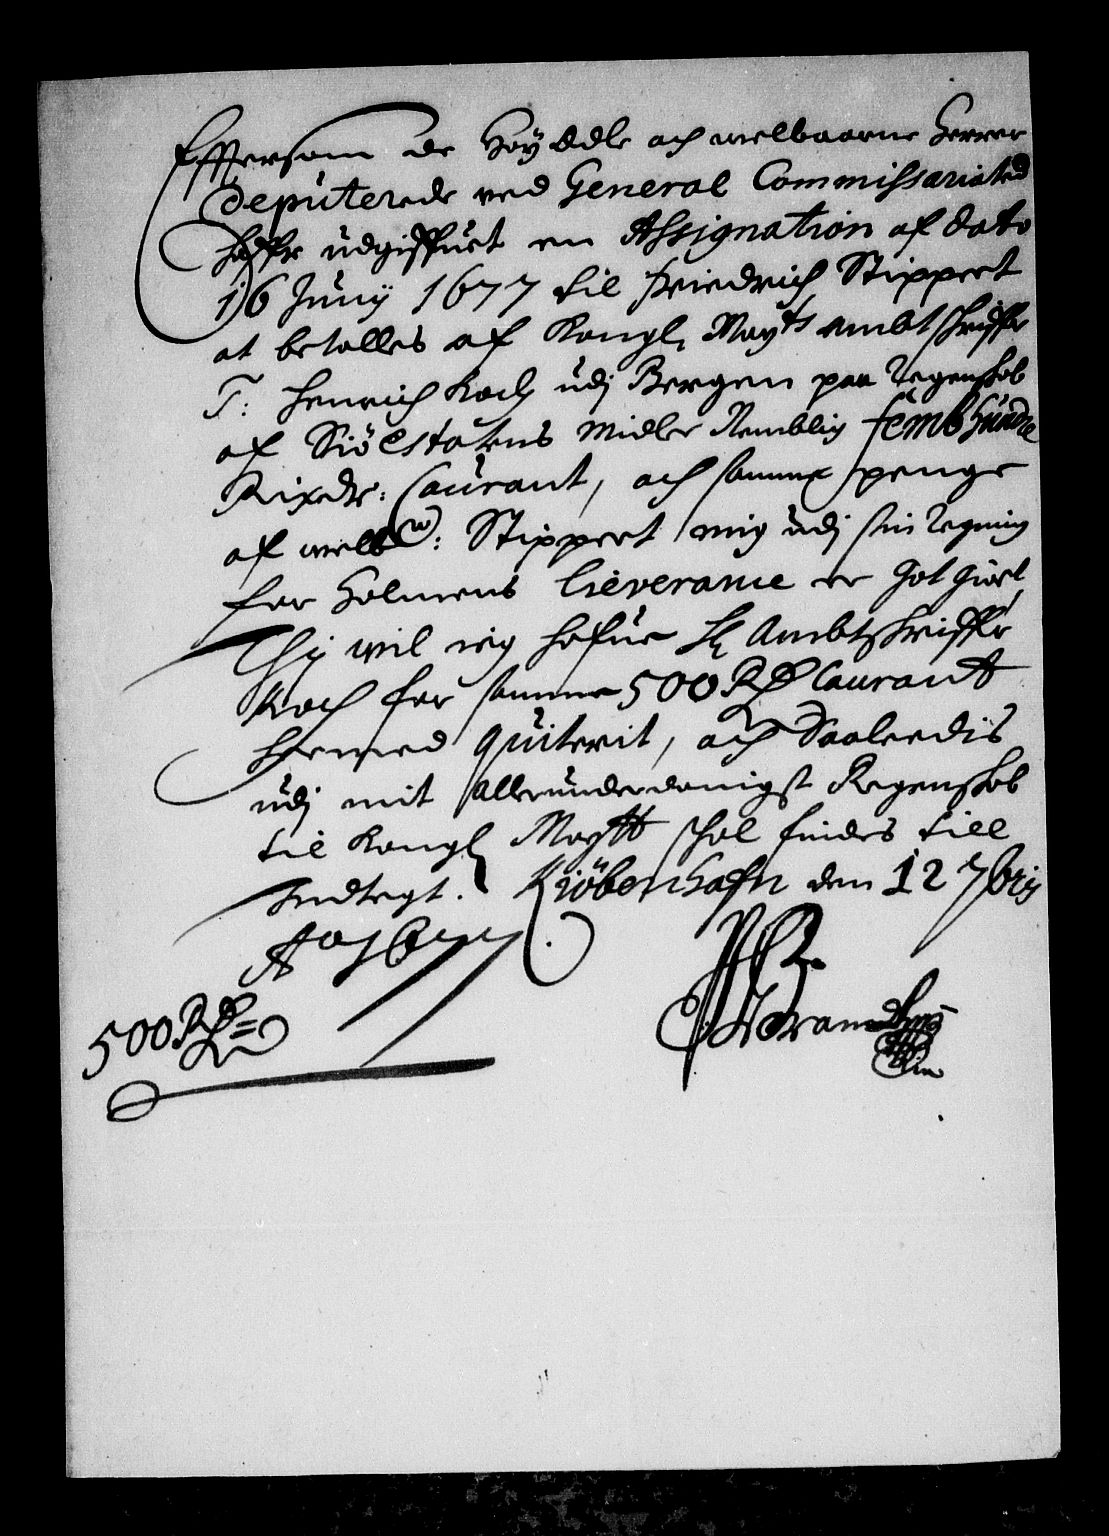 Effterson de Höy Edle och welbaarne Herrer
Deputerede ved General Commissariated
haffr udgiffuet en Assignation af dato
16 Junij 1677 til Friedrich Stippert
at betalles af Kongl. Maytts Ambtschriffr
T: Henrich Koch udj Bergen paa Regenskob
af Siöestatens Midler Nemblig femb hundre
Rixdr: Courant, och samme penge
af welbr: Stippert mig udj sin Regning
for Holmens lieverance er Got Giort,
Thj wil ieg hafue Sr Ambtschriffr
Koch for samme 500 Rdr Courant
hermed quiterit, och Saaleedis
udj mit Allerunderdanigst Regenskob
til Kongl Maytt schal findes till
Indtegt. Kiöbenhafn den 12 7bris
Ao 1677.
500 Rdr